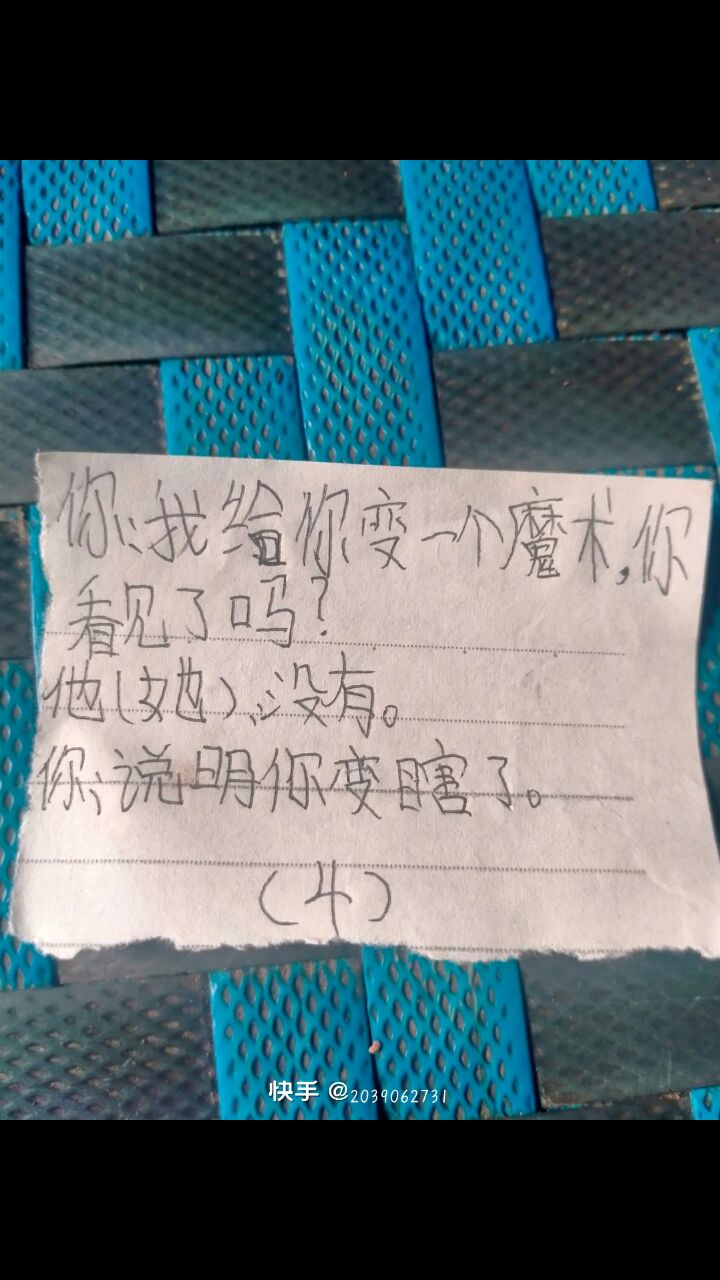 你:我给你变一个魔术,你
看见了吗?
他(她):没有。
你:说明你变瞎了。
(4)
快手 @2039062731